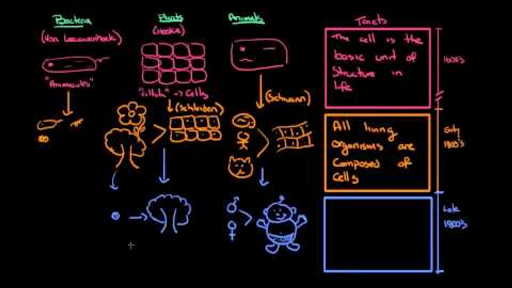 Bacteria
Plants
Animals
Tenets
(Van Leeuwenhoek)
(Hooke)
"Animalcules"
"cellula" -> Cells
(Schleiden)
(Schwann)
The cell is the
basic unit of
Structure in
life
1600's
All living
organisms are
Composed of
Cells
Early
1800's
Late
1800's